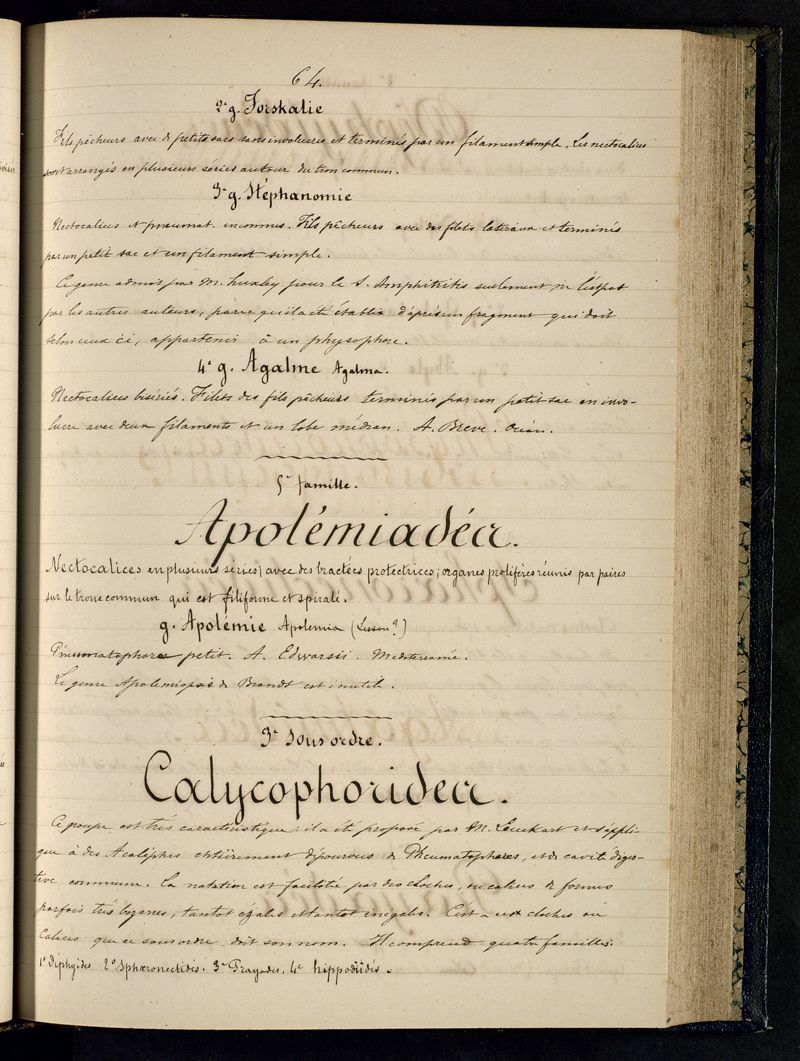 64.
2e g. Forskalie
Fils pêcheurs avec de petits sacs sans involucres et terminés par un filament simple. Les nectocalices
sont arrangés en plusieurs séries autour du tronc commun.
3e g. Stéphanomie
Nectocalices et pneumat. inconnus. Fils pêcheurs avec des filets lateraux et terminés
par un petit sac et un filament simple.
Ce genre admis par M. Huxley pour le S. Amphitritis seulement, ne l'est pas
par les autres auteurs, parce qu'il a été établi d'après un fragment qui doit
selon ceux ci, appartenir à un physophore.
4e g. Agalme Agalma.
Nectocalices bisériés. Filets des fils pêcheurs terminés par un petit sac en invo-
lucre avec deux filaments et un lobe médian. A. Breve. Océan.
5e famille.
Apolémiadéa.
Nectocalices en plusieurs séries; avec des bractées protectrices; organes prolifères réunis par paires
sur le tronc commun qui est filiforme et spiralé.
g. Apolémie Apolemia (Lesson?)
Pneumatophore petit. A. Edwarsii. Mediteranée.
Le genre Apolemiopsis de Brandt est inutile.
3e Sous ordre.
Calycophoridea.
Ce groupe est très caractéristique: il a été proposé par M. Leuckart et s'appli-
que à des Acalèphes entièrement dépourvus de Pneumatophores, et de cavité diges-
tive commune. La natation est facilitée par des cloches, ou calices de formes
parfois très bizarres, tantot égales et tantot inégales. C'est à ces cloches ou
Calices que ce sous ordre doit son nom. Il comprend quatre familles.
1e Diphyides 2e Sphæronectidés. 3e Prayades. 4e hippodiidés.